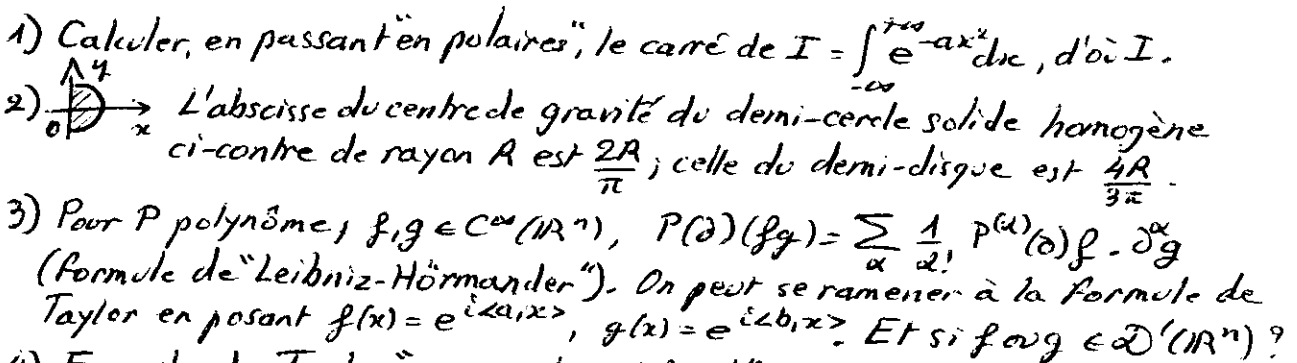 1) Calculer, en passant "en polaires", le carré de I = ∫_{-∞}^{+∞} e^{-ax²} dx, d'où I.
2) L'abscisse du centre de gravité du demi-cercle solide homogène
y 0 x
ci-contre de rayon R est 2R/π ; celle du demi-disque est 4R/3π.
3) Pour P polynôme, f,g ∈ C^∞(ℝⁿ), P(∂)(fg) = Σ_α 1/α! P^{(α)}(∂)f · ∂^α g
(formule de "Leibniz-Hörmander"). On peut se ramener à la formule de
Taylor en posant f(x) = e^{i<a,x>}, g(x) = e^{i<b,x>}. Et si f ou g ∈ 𝒟'(ℝⁿ) ?